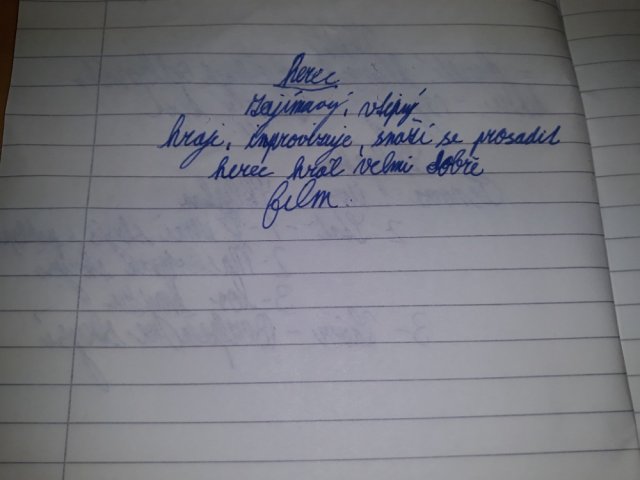 herec
zajímavý, vtipný
hraje, improvizuje, snaží se prosadit
herec hrál velmi dobře
film.